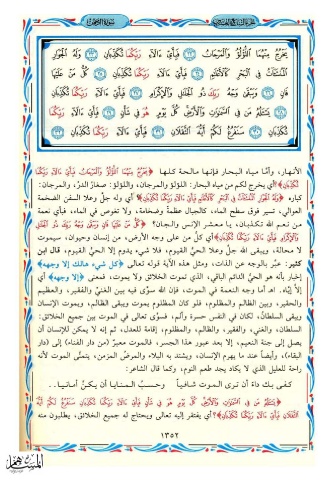 يَخْرُجُ مِنْهُمَا اللُّؤْلُؤُ وَالْمَرْجَانُ فَبِأَيِّ ءَالَاءِ رَبِّكُمَا تُكَذِّبَانِ وَلَهُ الْجَوَارِ
الْمُنشَآتُ فِي الْبَحْرِ كَالْأَعْلَامِ فَبِأَيِّ ءَالَاءِ رَبِّكُمَا تُكَذِّبَانِ كُلُّ مَنْ عَلَيْهَا
فَانٍ وَيَبْقَى وَجْهُ رَبِّكَ ذُو الْجَلَالِ وَالْإِكْرَامِ فَبِأَيِّ ءَالَاءِ رَبِّكُمَا
تُكَذِّبَانِ يَسْئَلُهُ مَن فِي السَّمَوَاتِ وَالْأَرْضِ كُلَّ يَوْمٍ هُوَ فِي شَأْنٍ فَبِأَيِّ ءَالَاءِ رَبِّكُمَا
تُكَذِّبَانِ سَنَفْرُغُ لَكُمْ أَيُّهَ الثَّقَلَانِ فَبِأَيِّ ءَالَاءِ رَبِّكُمَا تُكَذِّبَانِ
الأنهار، وأمّا مياه البحار فإنها مالحة كلها ﴿يَخْرُجُ مِنْهُمَا اللُّؤْلُؤُ وَالْمَرْجَانُ فَبِأَيِّ ءَالَاءِ رَبِّكُمَا
تُكَذِّبَانِ﴾ أي يخرج لكم من مياه البحار: اللؤلؤ والمرجان، واللؤلؤ: صغار الدرّ، والمرجان:
كباره ﴿وَلَهُ الْجَوَارِ الْمُنشَآتُ فِي الْبَحْرِ كَالْأَعْلَامِ فَبِأَيِّ ءَالَاءِ رَبِّكُمَا تُكَذِّبَانِ﴾ أي وله جلّ وعلا السفن الضخمة
العوالي، تسير فوق سطح الماء، كالجبال عظماً وضخامة، ولا تغوص في الماء، فبأي نعمة
من نعم الله تكذبان، يا معشر الإنس والجان؟ ﴿كُلُّ مَنْ عَلَيْهَا فَانٍ وَيَبْقَى وَجْهُ رَبِّكَ ذُو الْجَلَالِ
وَالْإِكْرَامِ فَبِأَيِّ ءَالَاءِ رَبِّكُمَا تُكَذِّبَانِ﴾ أي كلّ من على وجه الأرض، من إنسان وحيوان، سيموت
لا محالة، ويبقى الله جلّ وعلا الحيّ القيوم، فلا شيء يدوم إلا الحيّ القيوم، قال ابن
كثير: عبّر بالوجه عن الذات، ومثل هذه الآية قوله تعالى ﴿كل شيء هالك إلا وجهه﴾
إخبار بأنه هو الحيّ الدائم الباقي، الذي تموت الخلائق ولا يموت، فمعنى ﴿إلا وجهه﴾ أي
إلاّ إيّاه. اهـ أما وجه النعمة في الموت، فإن الله سوّى فيه بين الغنيّ والفقير، والعظيم
والحقير، وبين الظالم والمظلوم، فلو كان المظلوم يموت ويبقى الظالم، ويموت الإنسان
ويبقى السلطان، لكان في النفس حسرة وألم، فسوّى تعالى في الموت بين جميع الخلائق:
السلطان، والغني، والفقير، والظالم، والمظلوم، إقامة للعدل، ثم إنه لا يمكن للإنسان أن
يصل إلى جنة النعيم، إلا بعد عبور هذا الجسر، فالموت معبرٌ (من دار الفناء) إلى (دار
البقاء)، وأيضاً عند ما يهرم الإنسان، ويشتد به البلاء والمرض المزمن، يتمنّى الموت لأنه
راحة للعليل الذي لا يكاد يجد طعم النوم، وكما قال الشاعر:
كفى بك داءً أن ترى الموت شافياً وحسب المنايا أن يكنّ أمانيا..
﴿يَسْئَلُهُ مَن فِي السَّمَوَاتِ وَالْأَرْضِ كُلَّ يَوْمٍ هُوَ فِي شَأْنٍ فَبِأَيِّ ءَالَاءِ رَبِّكُمَا تُكَذِّبَانِ سَنَفْرُغُ لَكُمْ أَيُّهَ
الثَّقَلَانِ فَبِأَيِّ ءَالَاءِ رَبِّكُمَا تُكَذِّبَانِ﴾؟ أي يفتقر إليه تعالى ويحتاج له جميع الخلائق، يطلبون منه
١٣٥٢